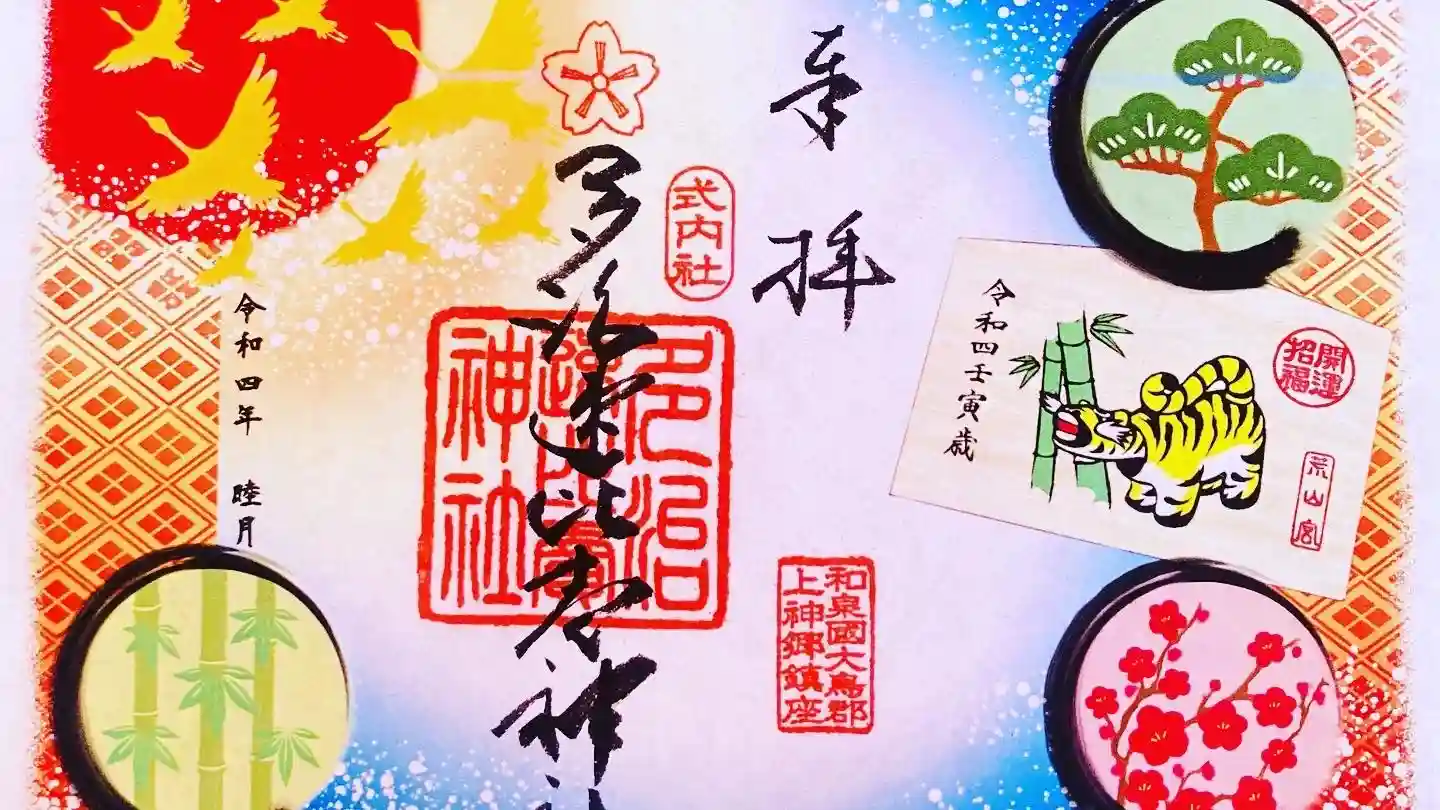 開運
招福
荒山宮
令和四壬寅歳
奉拝
和泉國大鳥郡
上神郷鎮座
式内社
多治速比売神社
多治
速比賣
神社
令和四年 睦月